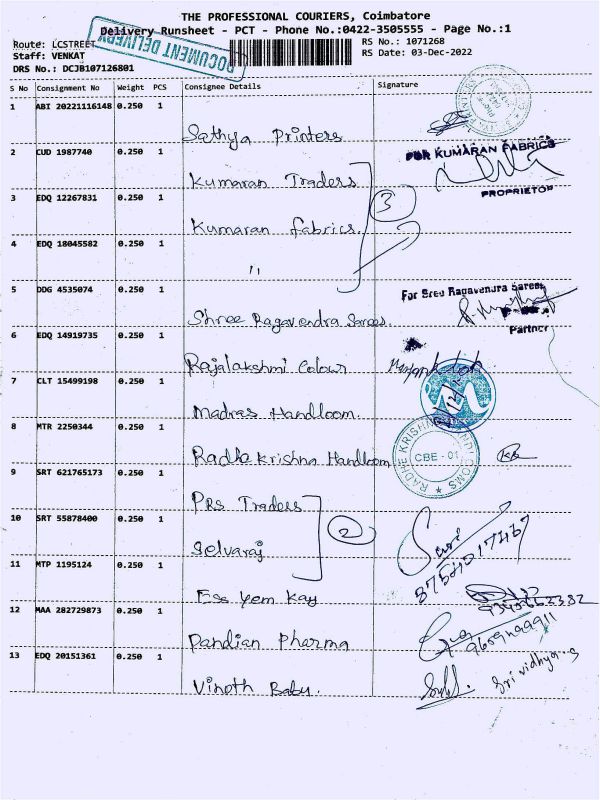 THE PROFESSIONAL COURIERS, Coimbatore
Delivery Runsheet - PCT - Phone No.:0422-3505555 - Page No.:1
Route: LCSTREET
RS No.: 1071268
Staff: VENKAT
RS Date: 03-Dec-2022
DRS No.: DCJB107126801
DOCUMENT DELIVERY
S No Consignment No Weight PCS Consignee Details Signature
1 ABI 20221116148 0.250 1
Sathya Printers
2 CUD 1987740 0.250 1
FOR KUMARAN FABRICS
Kumaran Traders
PROPRIETOR
3 EDQ 12267831 0.250 1
3
Kumaran fabrics.
4 EDQ 18045582 0.250 1
"
5 DDG 4535074 0.250 1
For Sree Ragavendra Sarees
Shree Ragavendra Sarees
Partner
6 EDQ 14919735 0.250 1
Rajalakshmi Colour
7 CLT 15499198 0.250 1
Madras Handloom.
8 MTR 2250344 0.250 1
RADHE KRISHNA HANDLOOMS
CBE - 01
Radhe Krishna Handloom
9 SRT 621765173 0.250 1
PRS Traders
2
10 SRT 55878400 0.250 1
Selvaraj
11 MTP 1195124 0.250 1
Ess Yem Kay
12 MAA 282729873 0.250 1
Pandian Pharma
13 EDQ 20151361 0.250 1
Sri vidhya
Vinoth Babu.